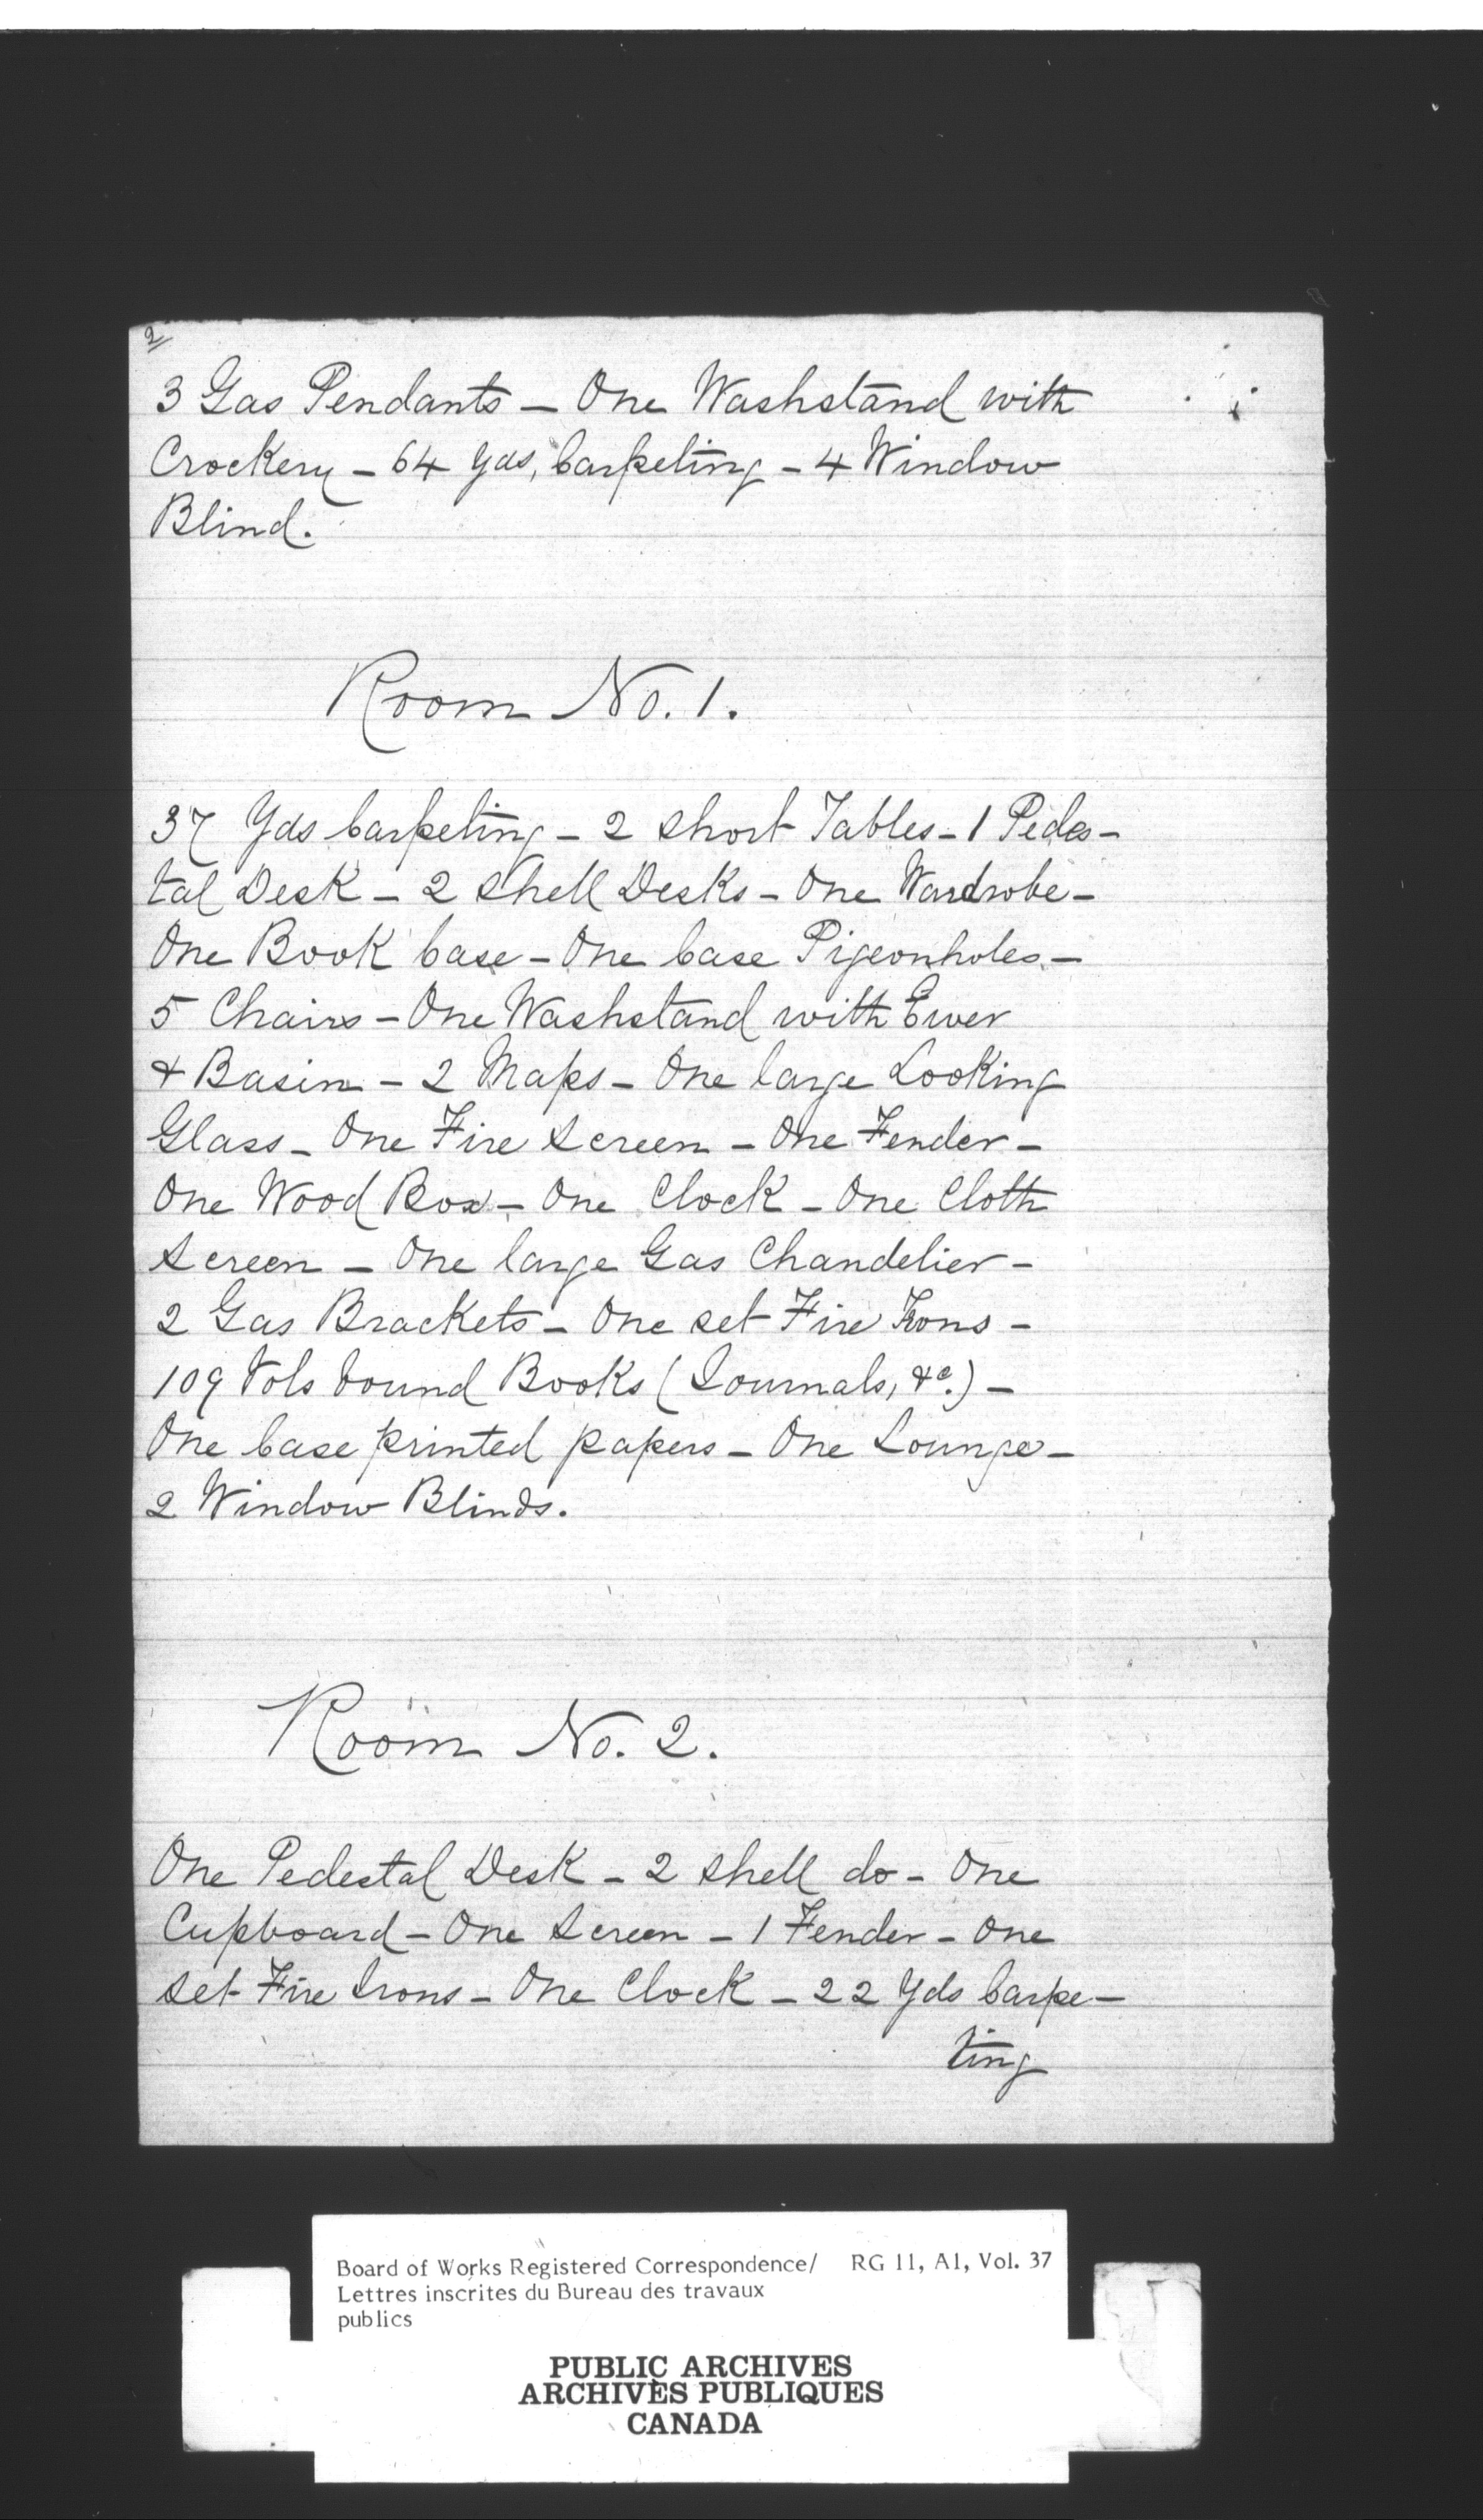 2/
3 Gas Pendants – One Washstand with
Crockery – 64 yds, Carpeting – 4 Window
Blind.
Room No. 1.
37 Yds Carpeting – 2 Short Tables – 1 Pedes-
tal Desk – 2 Shell Desks – One Wardrobe –
One Book Case – One Case Pigeonholes –
5 Chairs – One Washstand with Ewer
& Basin – 2 Maps – One large Looking
Glass – One Fire Screen – One Fender –
One Wood Box – One Clock – One Cloth
Screen – One large Gas Chandelier –
2 Gas Brackets – One set Fire Irons –
109 Vols bound Books (Journals, &c.) –
One Case printed papers – One Lounge –
2 Window Blinds.
Room No. 2.
One Pedestal Desk – 2 Shell do – One
Cupboard – One Screen – 1 Fender – One
set Fire Irons – One Clock – 22 Yds Carpe-
ting
Board of Works Registered Correspondence/ RG 11, A1, Vol. 37
Lettres inscrites du Bureau des travaux
publics
PUBLIC ARCHIVES
ARCHIVES PUBLIQUES
CANADA